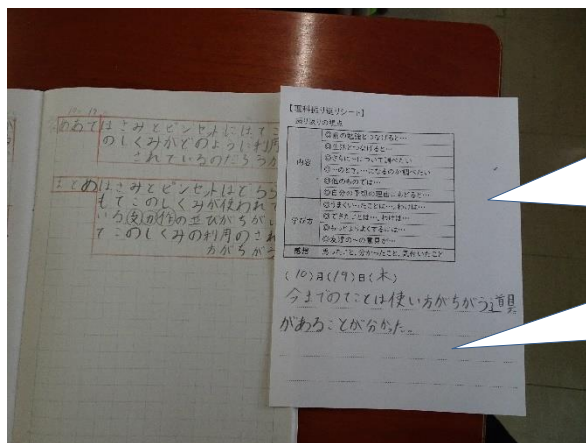 めあて はさみとピンセットにはてこ
のしくみがどのように利用
されているのだろうか
まとめ はさみとピンセットはどちら
もてこのしくみが使われて
いる
の並びがちがい
てこのしくみの利用のされ
方がちがう
【理科振り返りシート】
振り返りの視点
内容
◎前の勉強とつなげると…
◎生活とつなげると…
◎さらに…について調べたい
◎…のとき、…になるのか調べたい
◎他のものでは…
◎自分の予想の理由にもどると…
学び方
◎うまくいったことは…、わけは…
◎できたことは…、わけは…
◎もっとよりよくするには…
◎友達の~の意見が…
感想 思ったこと、分かったこと、気付いたこと
(10)月(19)日(水)
今までのてことは使い方がちがう道具
があることが分かった。